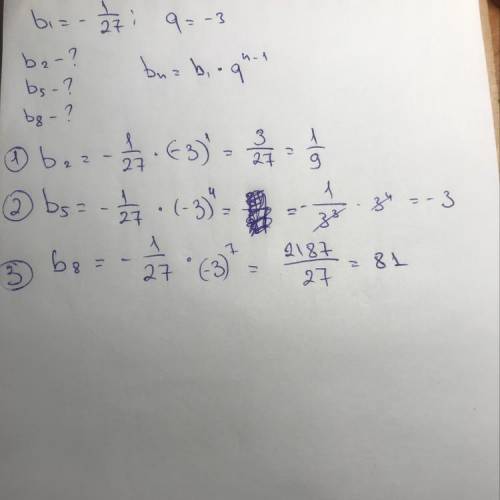 b₁ = - 1/27 ; q = -3
b₂ - ?
b₅ - ?
b₈ - ?
bₙ = b₁ · qⁿ⁻¹
① b₂ = - 1/27 · (-3)¹ = 3/27 = 1/9
② b₅ = - 1/27 · (-3)⁴ = = - 1/3³ · 3⁴ = -3
③ b₈ = - 1/27 · (-3)⁷ = 2187/27 = 81